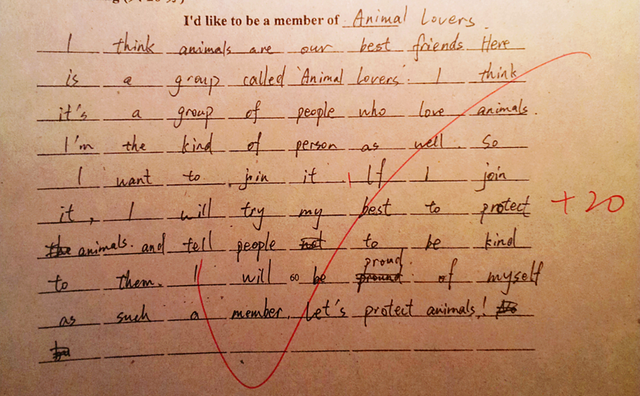 I'd like to be a member of Animal Lovers.
I think animals are our best friends. Here
is a group called 'Animal Lovers'. I think
it's a group of people who love animals.
I'm the kind of person as well. So
I want to join it. If I join
it, I will try my best to protect +20
the animals. and tell people not to be kind
proud
to them. I will so be pround of myself
as such a member. Let's protect animals!